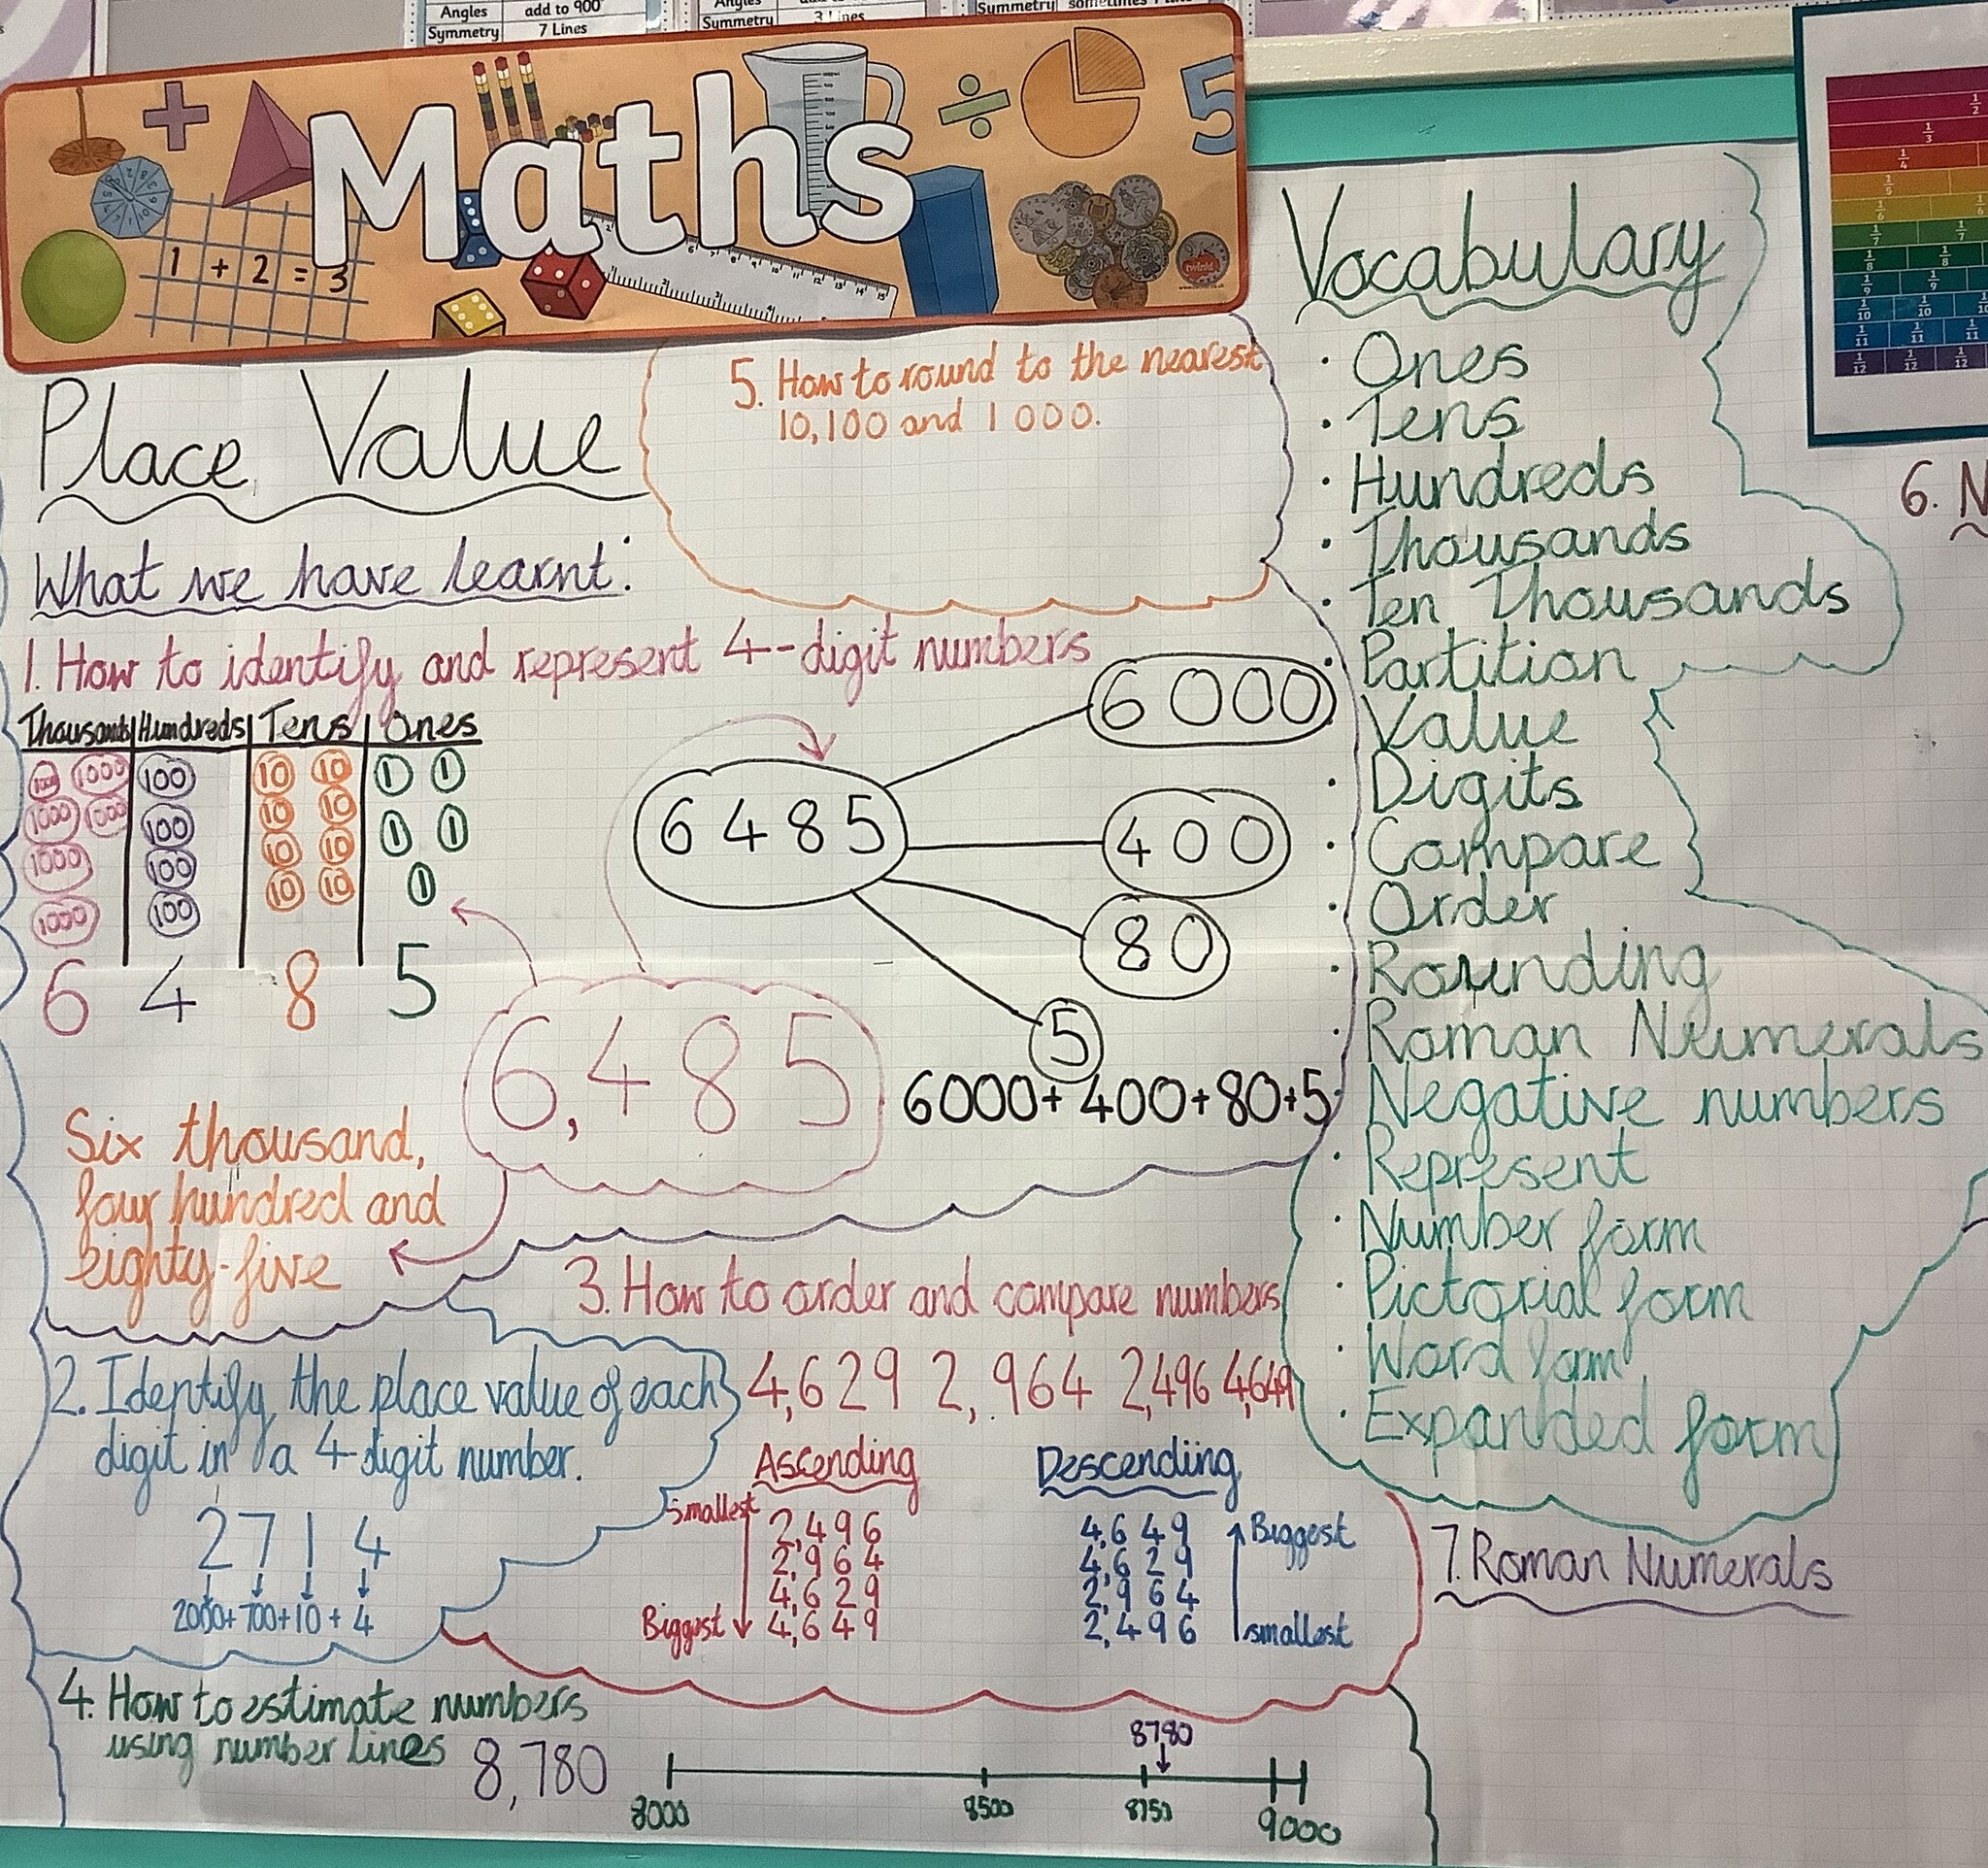 Angles add to 900
Symmetry 7 Lines
Symmetry 3 Lines
Symmetry
Maths
5
1 + 2 = 3
twinkl
Place Value
What we have learnt:
1. How to identify and represent 4-digit numbers
Thousands Hundreds Tens Ones
1000 1000 100 10 10 1 1
1000 1000 100 10 10 1 1
1000 100 10 10 1
1000 100 10 10
6 4 8 5
6485
6000
400
80
5
6,485
6000+400+80+5
Six thousand,
four hundred and
eighty-five
2. Identify the place value of each
digit in a 4-digit number.
2714
2000+700+10+4
3. How to order and compare numbers
4,629 2,964 2,496 4,649
Ascending
Smallest 2,496
2,964
4,629
Biggest 4,649
Descendiing
4,649 Biggest
4,629
2,964
2,496 smallest
4. How to estimate numbers
using number lines
8,780
8780
8000 8500 8750 9000
5. How to round to the nearest
10,100 and 1000.
Vocabulary
· Ones
· Tens
· Hundreds
· Thousands
· Ten Thousands
· Partition
· Value
· Digits
· Compare
· Order
· Rounding
· Roman Numerals
· Negative numbers
· Represent
· Number form
· Pictorial form
· Word form
· Expanded form
6. N
7. Roman Numerals
1/2
1/3
1/4
1/5
1/6 1/6
1/7 1/7
1/8 1/8
1/9 1/9
1/10 1/10 1/10
1/11 1/11 1/11
1/12 1/12 1/12